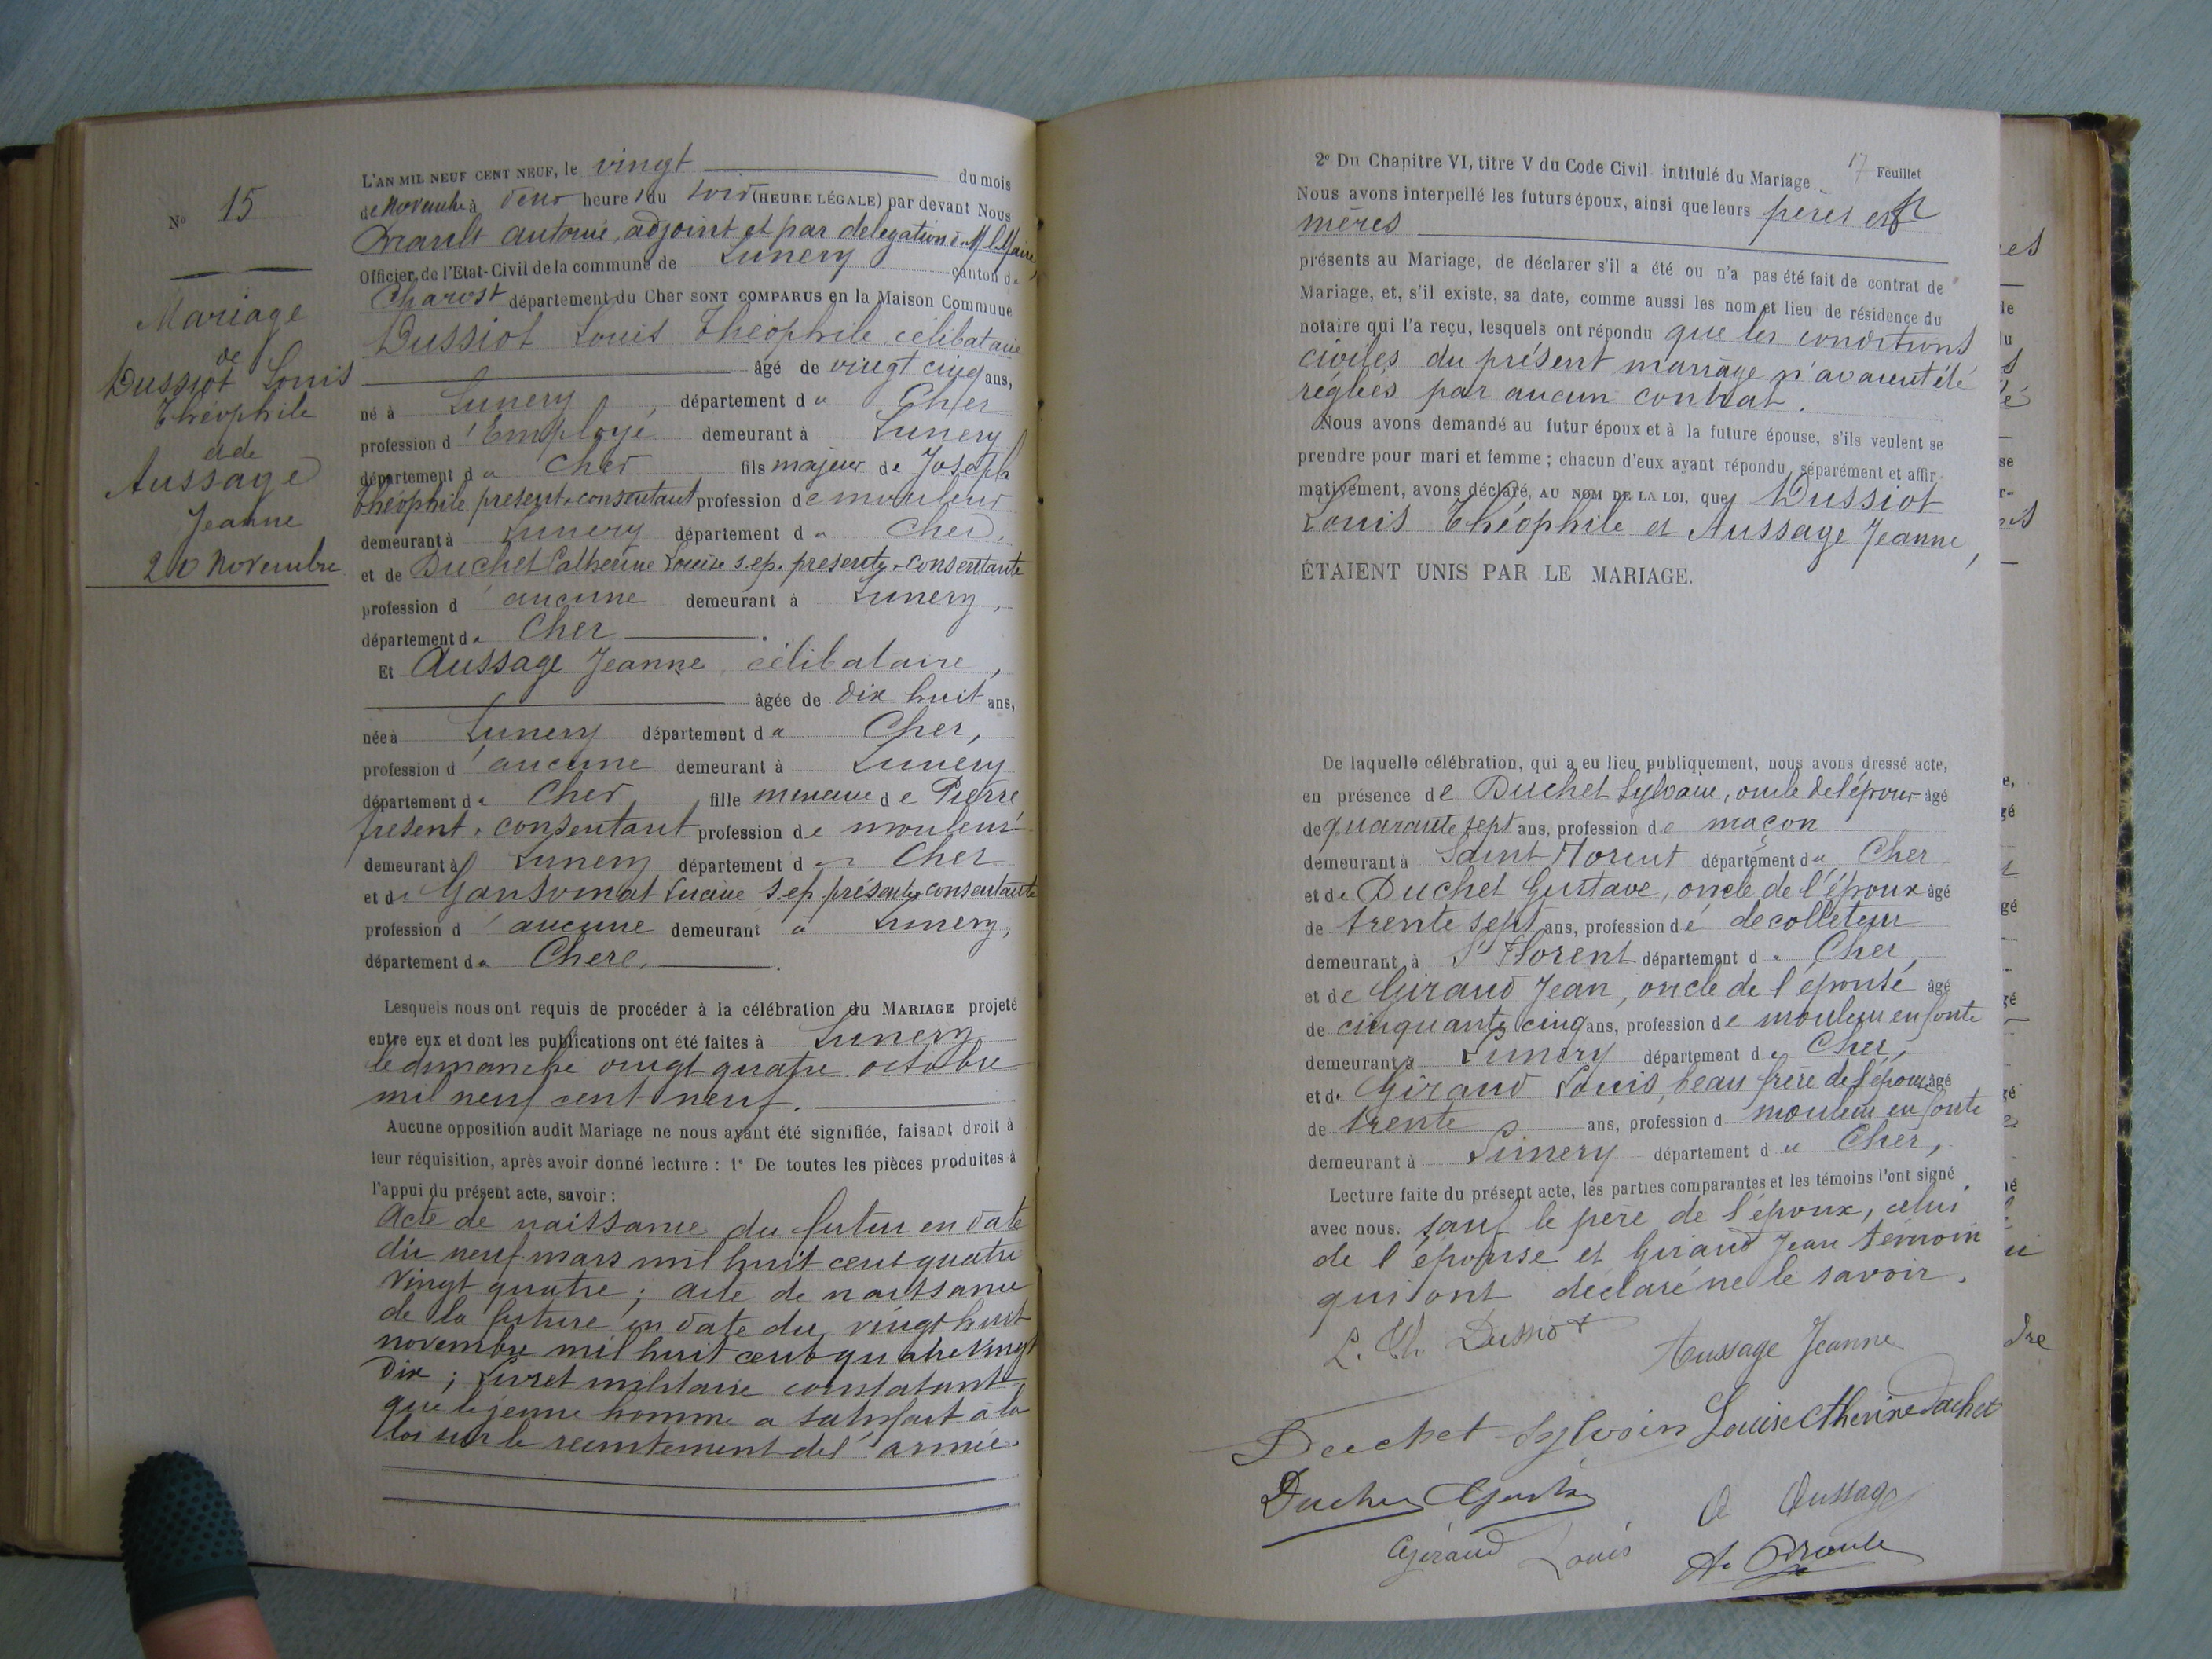 N° 15
Mariage
de
Dussiot Louis
Théophile
et de
Aussage
Jeanne
20 Novembre
L'AN MIL NEUF CENT NEUF, le vingt du mois
de Novembre à deux heures du soir (HEURE LÉGALE) par devant Nous
antoine, adjoint et par délégation de M le Maire
Officier de l'Etat-Civil de la commune de Lunery canton de
Charost département du Cher SONT COMPARUS en la Maison Commune
Dussiot Louis Théophile célibataire
âgé de vingt cinq ans,
né à Lunery, département du Cher
profession d'Employé demeurant à Lunery
département du Cher fils majeur de Joseph
Théophile présent & consentant profession de mouleur
demeurant à Lunery département du Cher,
et de Duchet Catherine Louise s. ep. présente & consentante
profession d'aucune demeurant à Lunery,
département du Cher.
Et Aussage Jeanne, célibataire,
âgée de dix huit ans,
née à Lunery département du Cher,
profession d'aucune demeurant à Lunery
département du Cher, fille mineure de Pierre
présent & consentant profession de mouleur
demeurant à Lunery département du Cher
et de s. ep. présente & consentante
profession d'aucune demeurant à Lunery,
département du Cher.
Lesquels nous ont requis de procéder à la célébration du MARIAGE projeté
entre eux et dont les publications ont été faites à Lunery
le dimanche vingt quatre octobre
mil neuf cent neuf.
Aucune opposition audit Mariage ne nous ayant été signifiée, faisant droit à
leur réquisition, après avoir donné lecture : 1° De toutes les pièces produites à
l'appui du présent acte, savoir :
Acte de naissance du futur en date
dix neuf mars mil huit cent quatre
vingt quatre ; acte de naissance
de la future en date du vingt huit
novembre mil huit cent quatre vingt
dix ; Livret militaire constatant
que le jeune homme a satisfait à la
loi sur le recrutement de l'armée.
17 Feuillet
2° Du Chapitre VI, titre V du Code Civil intitulé du Mariage.
Nous avons interpellé les futurs époux, ainsi que leurs pères et
mères
présents au Mariage, de déclarer s'il a été ou n'a pas été fait de contrat de
Mariage, et, s'il existe, sa date, comme aussi les nom et lieu de résidence du
notaire qui l'a reçu, lesquels ont répondu que les conditions
civiles du présent mariage n'avaient été
réglées par aucun contrat.
Nous avons demandé au futur époux et à la future épouse, s'ils veulent se
prendre pour mari et femme ; chacun d'eux ayant répondu séparément et affir-
mativement, avons déclaré, AU NOM DE LA LOI, que Dussiot
Louis Théophile et Aussage Jeanne,
ÉTAIENT UNIS PAR LE MARIAGE.
De laquelle célébration, qui a eu lieu publiquement, nous avons dressé acte,
en présence de Duchet Sylvain, oncle de l'époux âgé
de quarante sept ans, profession de maçon
demeurant à Saint Florent département du Cher
et de Duchet Gustave, oncle de l'époux âgé
de trente sept ans, profession de décolleteur
demeurant à St Florent département du Cher,
et de Giraud Jean, oncle de l'épouse âgé
de cinquante cinq ans, profession de mouleur en fonte
demeurant à Lunery département du Cher,
et de Giraud Louis, beau frère de l'épouse âgé
de trente ans, profession d mouleur en fonte
demeurant à Lunery département du Cher,
Lecture faite du présent acte, les parties comparantes et les témoins l'ont signé
avec nous. sauf le père de l'époux, celui
de l'épouse et Giraud Jean témoin
qui ont déclaré ne le savoir.
L. Th. Dussiot
Aussage Jeanne
Duchet Sylvain
Louise Catherine Duchet
Aussage
Giraud Louis